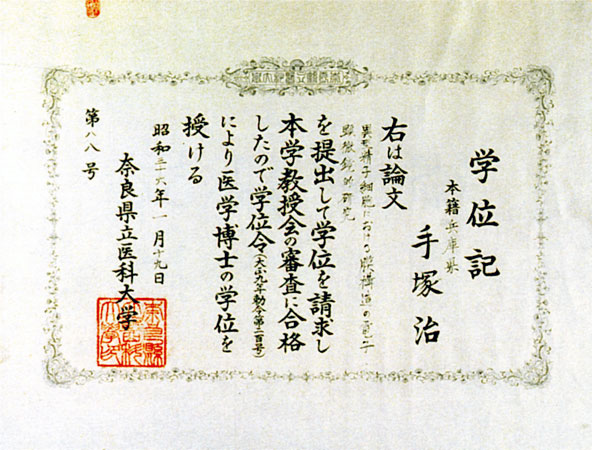 学位記
本籍兵庫県
手塚治
右は論文
異型精子細胞における膜構造の電子
顕微鏡的研究
を提出して学位を請求し
本学教授会の審査に合格
したので学位令(大正九年勅令第二百号)
により医学博士の学位を
授ける
昭和三十六年一月十九日
奈良県立医科大学
第八八号